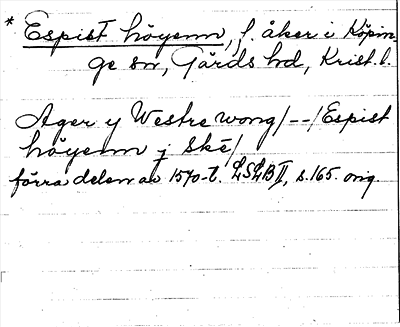 * Espist höyenn, f. åker i Köpin-
ge sn, Gärds hd, Krist. l.
Ager y Westre wong/--/Espist
höyenn j Ske/
förra delen av 1570-t. LSLB II, s. 165. orig.